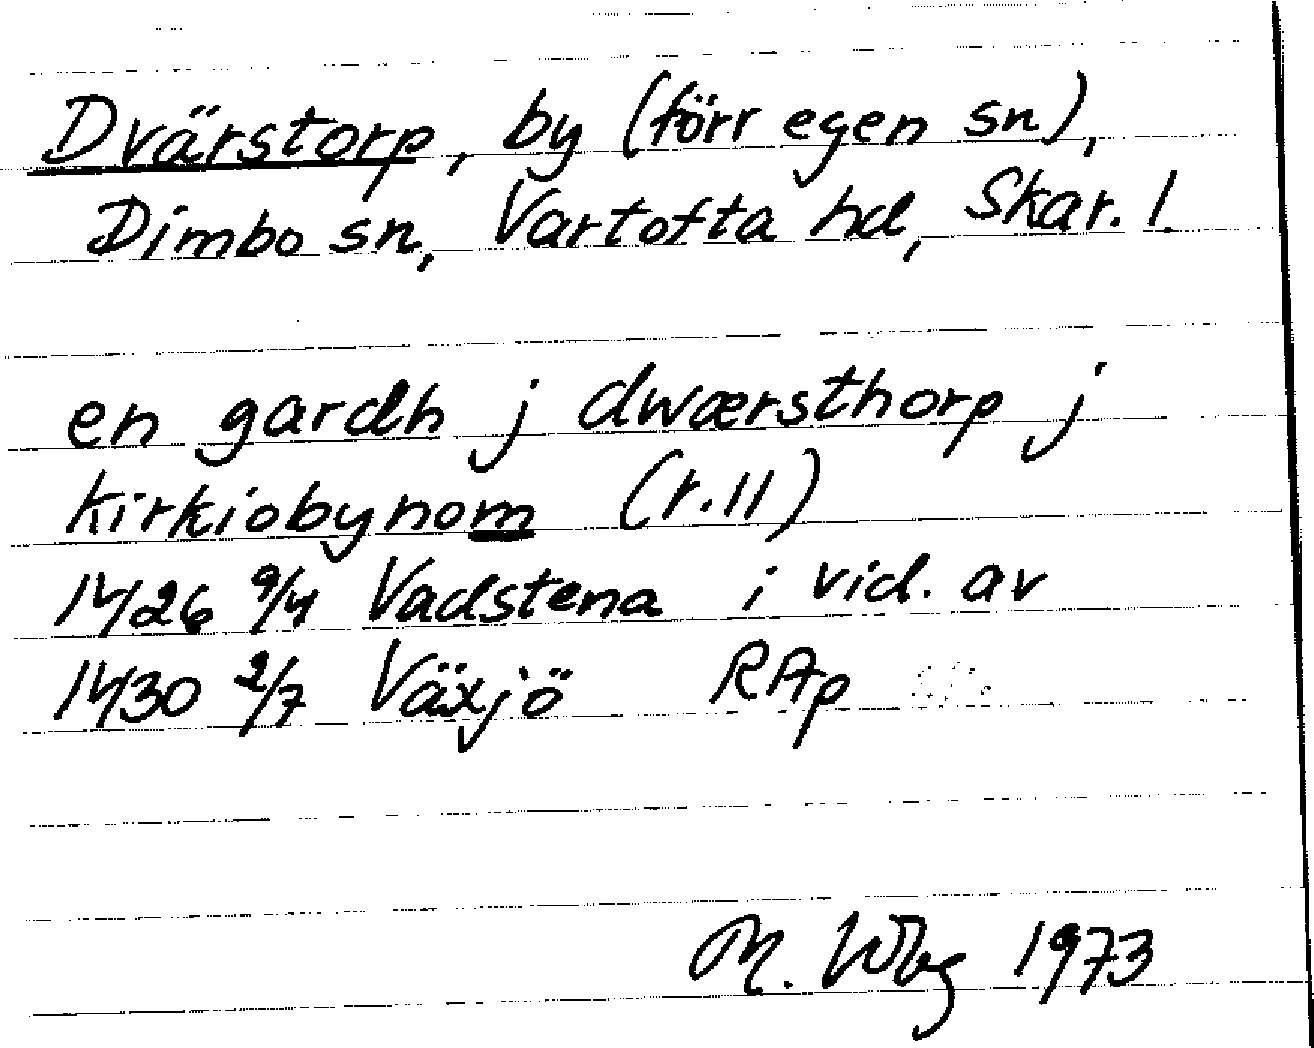 Dvärstorp, by (förr egen sn),
Dimbo sn, Vartofta hd, Skar. l.
en gardh j dwærsthorp j
kirkiobynom (r.11)
1426 9/4 Vadstena i vid. av
1430 2/7 Växjö RAp
M. Wbg 1973